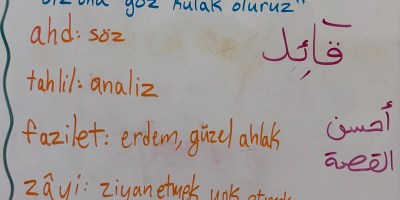 göz kulak oluruz"
ahd: söz
tahlil: analiz
fazilet: erdem, güzel ahlak
zâyi: ziyan etmek, yok etmek
قائِد
أحسن
القصة